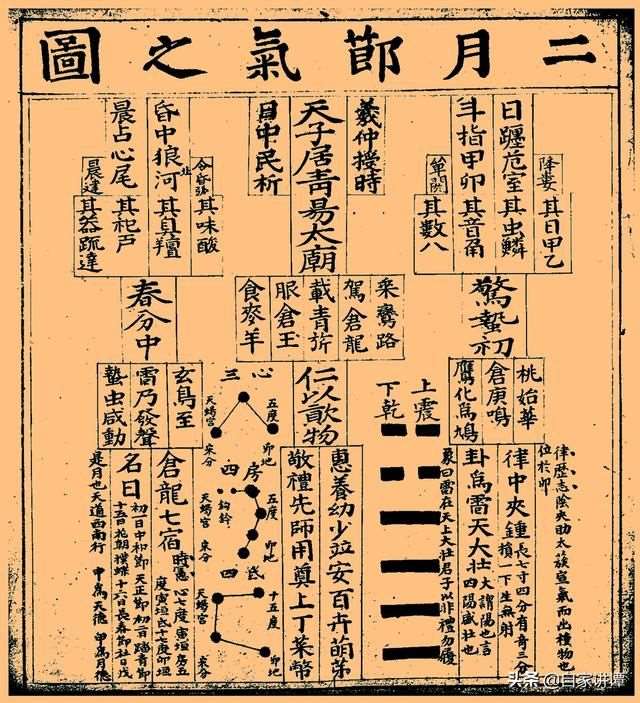 二月莭氣之圖
降婁
其日甲乙
日躔危室
其虫鱗
斗指甲卯
其音角
單閼
其數八
羲仲撜時
天子居青昜太廟
日中民析
其味酸
昏中狼河
其臭羶
晨占心尾
其祀戶
晨達
其器疏達
驚蟄初
桃始華
倉庚鳴
鷹化為鳩
律歷志陰夾助太簇宣氣而出種物也
位於卯
律中夾鍾
長七寸四分有奇三分
損一下生無射
卦為雷天大壯
大謂陽也言
四陽盛壯也
上震
下乾
象曰雷在天上大壯君子以非禮勿履
乘鸞路
駕倉龍
載青旂
服倉玉
食麥羊
仁以物
惠養幼少竝安百卉萌芽
敬禮先師用奠上丁菜幣
心三
五度
卯地
天蝎宮
宋分
房四
鈎鈐
五度
卯地
天蝎宮
宋分
氐四
十五度
卯地
天蝎宮
宋分
春分中
玄鳥至
雷乃發聲
蟄虫咸動
倉龍七宿
時憲心八度寅垣房五
度寅垣氐十七度卯垣
名日
初一日中和節天正節初二踏青節
十五日花朝撲蝶十六日長春節社日戊
是月也天道西南行
申為天德甲為月德
头条 @白家讲谭